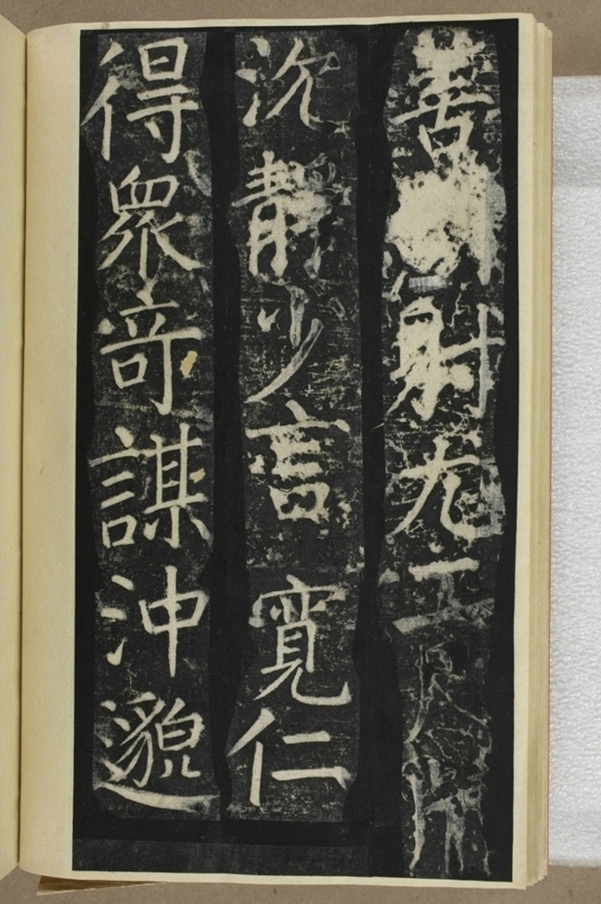 善射尤工尺
沉靜少言寬仁
得眾奇謀沖邈